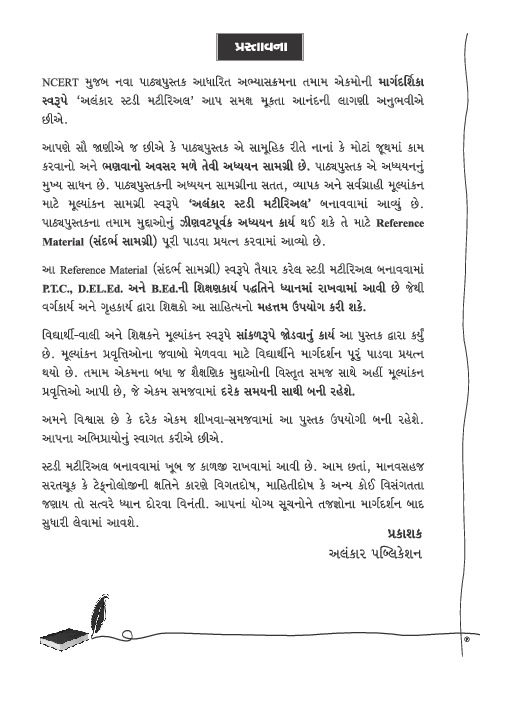 પ્રસ્તાવના
NCERT મુજબ નવા પાઠ્યપુસ્તક આધારિત અભ્યાસક્રમના તમામ એકમોની માર્ગદર્શિકા
સ્વરૂપે ‘અલંકાર સ્ટડી મટીરિઅલ’ આપ સમક્ષ મૂકતા આનંદની લાગણી અનુભવીએ
છીએ.
આપણે સૌ જાણીએ જ છીએ કે પાઠ્યપુસ્તક એ સામૂહિક રીતે નાનાં કે મોટાં જૂથમાં કામ
કરવાનો અને ભણવાનો અવસર મળે તેવી અધ્યયન સામગ્રી છે. પાઠ્યપુસ્તક એ અધ્યયનનું
મુખ્ય સાધન છે. પાઠ્યપુસ્તકની અધ્યયન સામગ્રીના સતત, વ્યાપક અને સર્વગ્રાહી મૂલ્યાંકન
માટે મૂલ્યાંકન સામગ્રી સ્વરૂપે ‘અલંકાર સ્ટડી મટીરિઅલ’ બનાવવામાં આવ્યું છે.
પાઠ્યપુસ્તકના તમામ મુદ્દાઓનું ઝીણવટપૂર્વક અધ્યયન કાર્ય થઈ શકે તે માટે Reference
Material (સંદર્ભ સામગ્રી) પૂરી પાડવા પ્રયત્ન કરવામાં આવ્યો છે.
આ Reference Material (સંદર્ભ સામગ્રી) સ્વરૂપે તૈયાર કરેલ સ્ટડી મટીરિઅલ બનાવવામાં
P.T.C., D.EL.Ed. અને B.Ed.ની શિક્ષણકાર્ય પદ્ધતિને ધ્યાનમાં રાખવામાં આવી છે જેથી
વર્ગકાર્ય અને ગૃહકાર્ય દ્વારા શિક્ષકો આ સાહિત્યનો મહત્તમ ઉપયોગ કરી શકે.
વિદ્યાર્થી-વાલી અને શિક્ષકને મૂલ્યાંકન સ્વરૂપે સાંકળરૂપે જોડવાનું કાર્ય આ પુસ્તક દ્વારા કર્યું
છે. મૂલ્યાંકન પ્રવૃત્તિઓના જવાબો મેળવવા માટે વિદ્યાર્થીને માર્ગદર્શન પૂરું પાડવા પ્રયત્ન
થયો છે. તમામ એકમના બધા જ શૈક્ષણિક મુદ્દાઓની વિસ્તૃત સમજ સાથે અહીં મૂલ્યાંકન
પ્રવૃત્તિઓ આપી છે, જે એકમ સમજવામાં દરેક સમયની સાથી બની રહેશે.
અમને વિશ્વાસ છે કે દરેક એકમ શીખવા-સમજવામાં આ પુસ્તક ઉપયોગી બની રહેશે.
આપના અભિપ્રાયોનું સ્વાગત કરીએ છીએ.
સ્ટડી મટીરિઅલ બનાવવામાં ખૂબ જ કાળજી રાખવામાં આવી છે. આમ છતાં, માનવસહજ
સરતચૂક કે ટેક્નોલોજીની ક્ષતિને કારણે વિગતદોષ, માહિતીદોષ કે અન્ય કોઈ વિસંગતતા
જણાય તો સત્વરે ધ્યાન દોરવા વિનંતી. આપનાં યોગ્ય સૂચનોને તજજ્ઞોના માર્ગદર્શન બાદ
સુધારી લેવામાં આવશે.
પ્રકાશક
અલંકાર પબ્લિકેશન